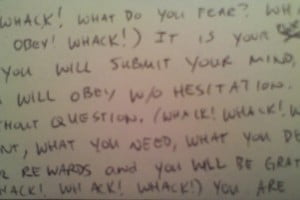 WHACK! WHAT DO YOU FEAR? WH
OBEY! WHACK!) IT IS YOUR
YOU WILL SUBMIT YOUR MIND,
WILL OBEY W/O HESITATION.
THOUT QUESTION. (WHACK! WHACK! W
NT, WHAT YOU NEED, WHAT YOU DE
R REWARDS and YOU WILL BE GRAT
HACK! WHACK! WHACK!) YOU ARE